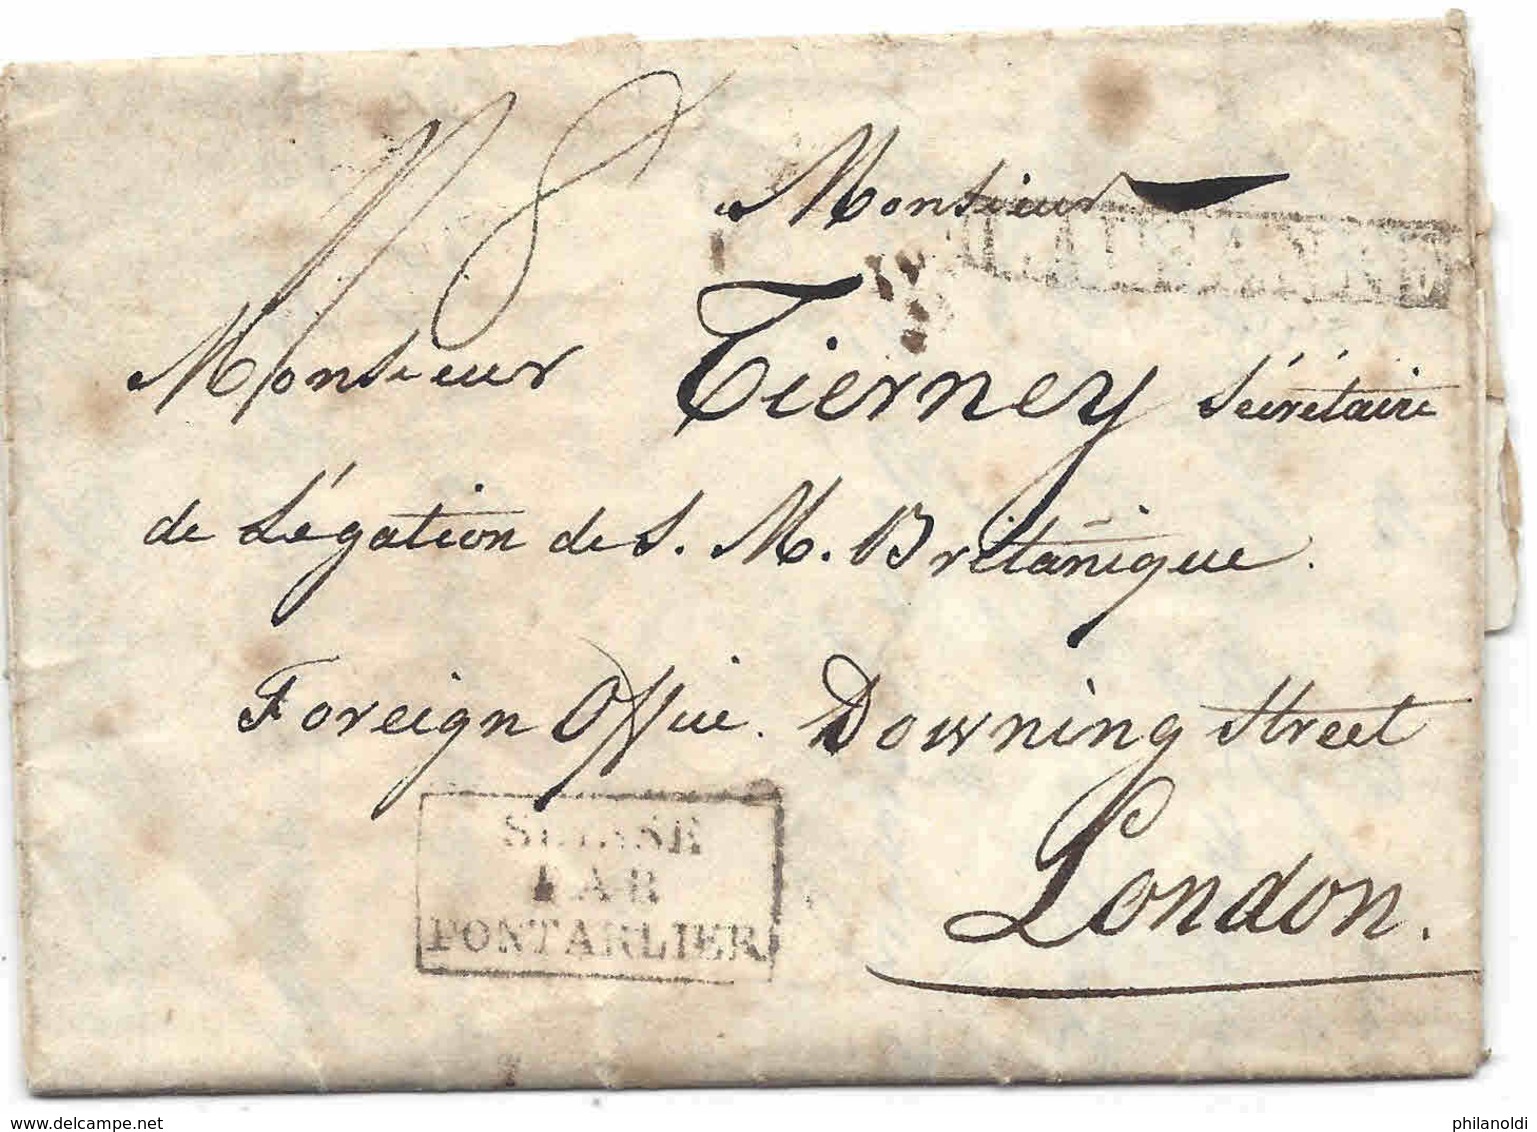 1/8
Monsieur
LAUSANNE
Monsieur Tierney Sécrétaire
de Légation de S. M. Britānique.
Foreign Office. Downing Street
London.
SUISSE
PAR
PONTARLIER
www.delcampe.net
philanoldi